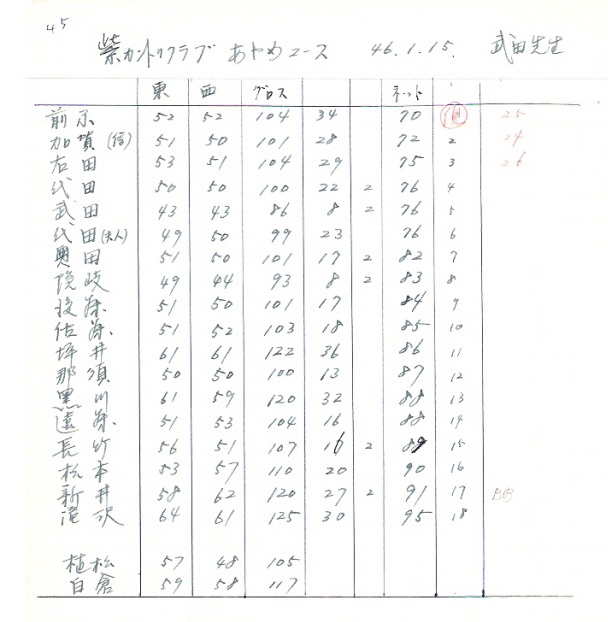 45
紫カントリクラブ あやめコース 46.1.15. 武田先生
東 西 グロス ネット
前 52 52 104 34 70 25
加賀(信) 51 50 101 28 72 2 24
右田 53 51 104 29 75 3 26
代田 50 50 100 22 2 76 4
武田 43 43 86 8 2 76 5
代田(夫人) 49 50 99 23 76 6
奥田 51 50 101 17 2 82 7
隠岐 49 44 93 8 2 83 8
後藤 51 50 101 17 84 9
佐藤 51 52 103 18 85 10
坪井 61 61 122 36 86 11
那須 50 50 100 13 87 12
黒川 61 59 120 32 88 13
遠藤 51 53 104 16 88 14
長竹 56 51 107 16 2 89 15
松本 53 57 110 20 90 16
新井 58 62 120 27 2 91 17 BB
滝沢 64 61 125 30 95 18
植松 57 48 105
白倉 59 58 117